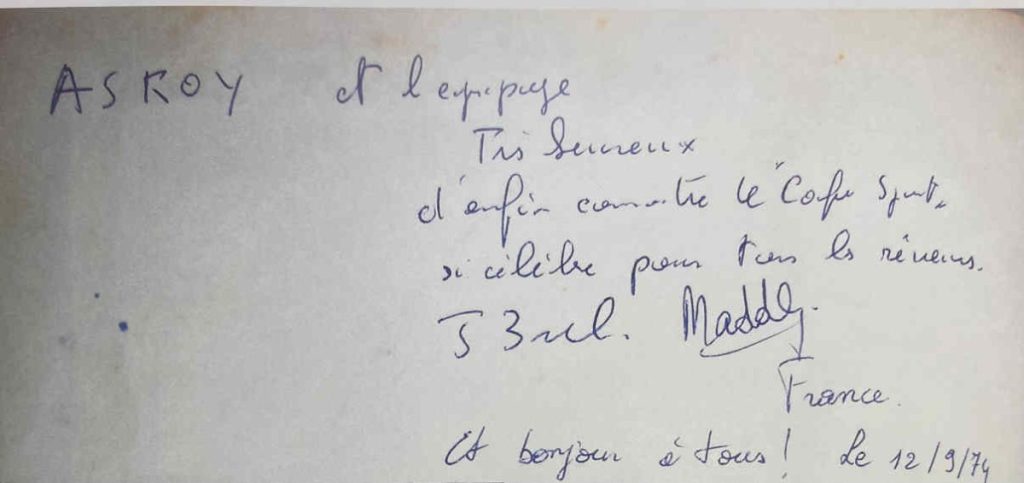 ASKOY et l'equipage
Très heureux
d'enfin connaitre le "Cafe Sport"
si célèbre pour tous les rêveurs.
J Brel. Maddly.
France.
Et bonjour à tous! Le 12/9/74